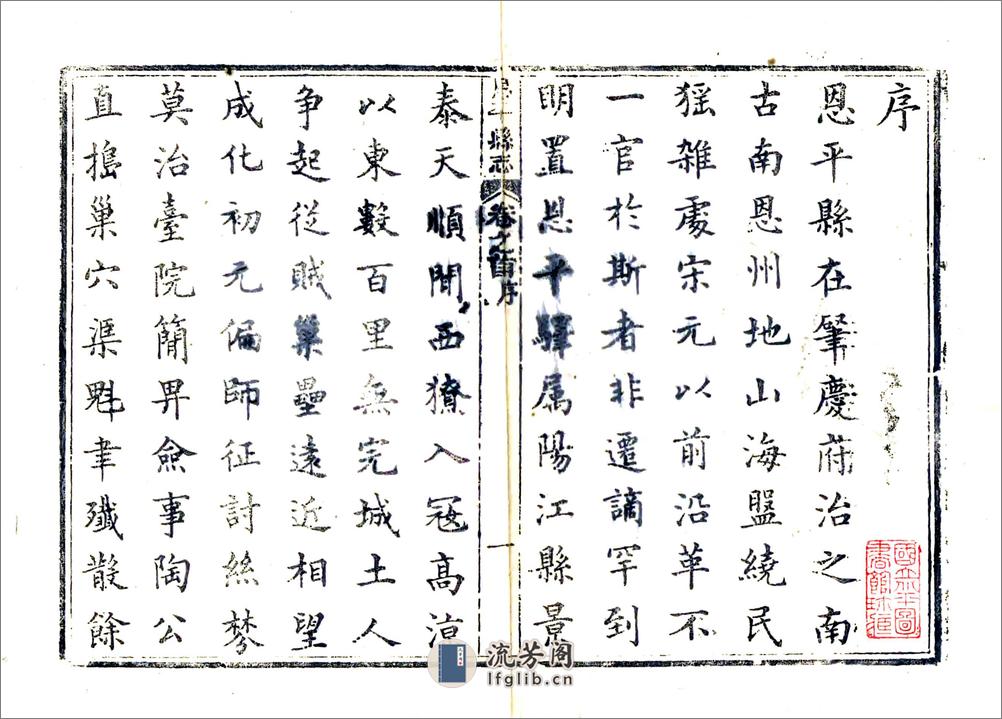 序
恩平縣在肇慶府治之南
古南恩州地山海盤繞民
猺雜處宋元以前沿革不
一官於斯者非遷謫罕到
明置恩平驛属陽江縣景
縣志 卷 首序
一
泰天順間西獠入寇高涼
以東數百里無完城土人
爭起從賊巢壘遠近相望
成化初元偏師征討絲棼
莫治臺院簡畀僉事陶公
直搗巢穴渠魁聿殲散餘
流芳阁
lfglib.cn